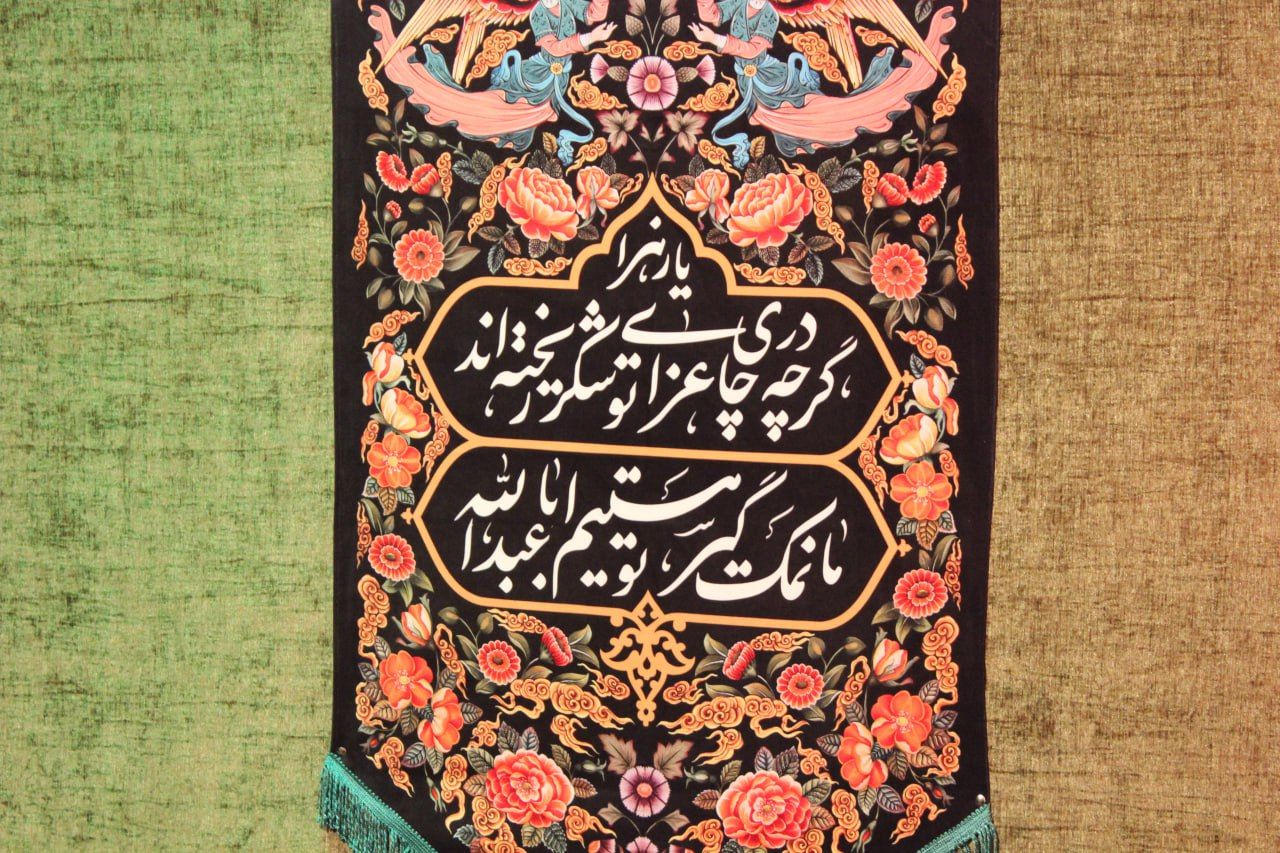 یا زهرا
گرچه در چای عزای تو شکر ریخته اند
ما نمک گیر تو هستیم ابا عبدالله